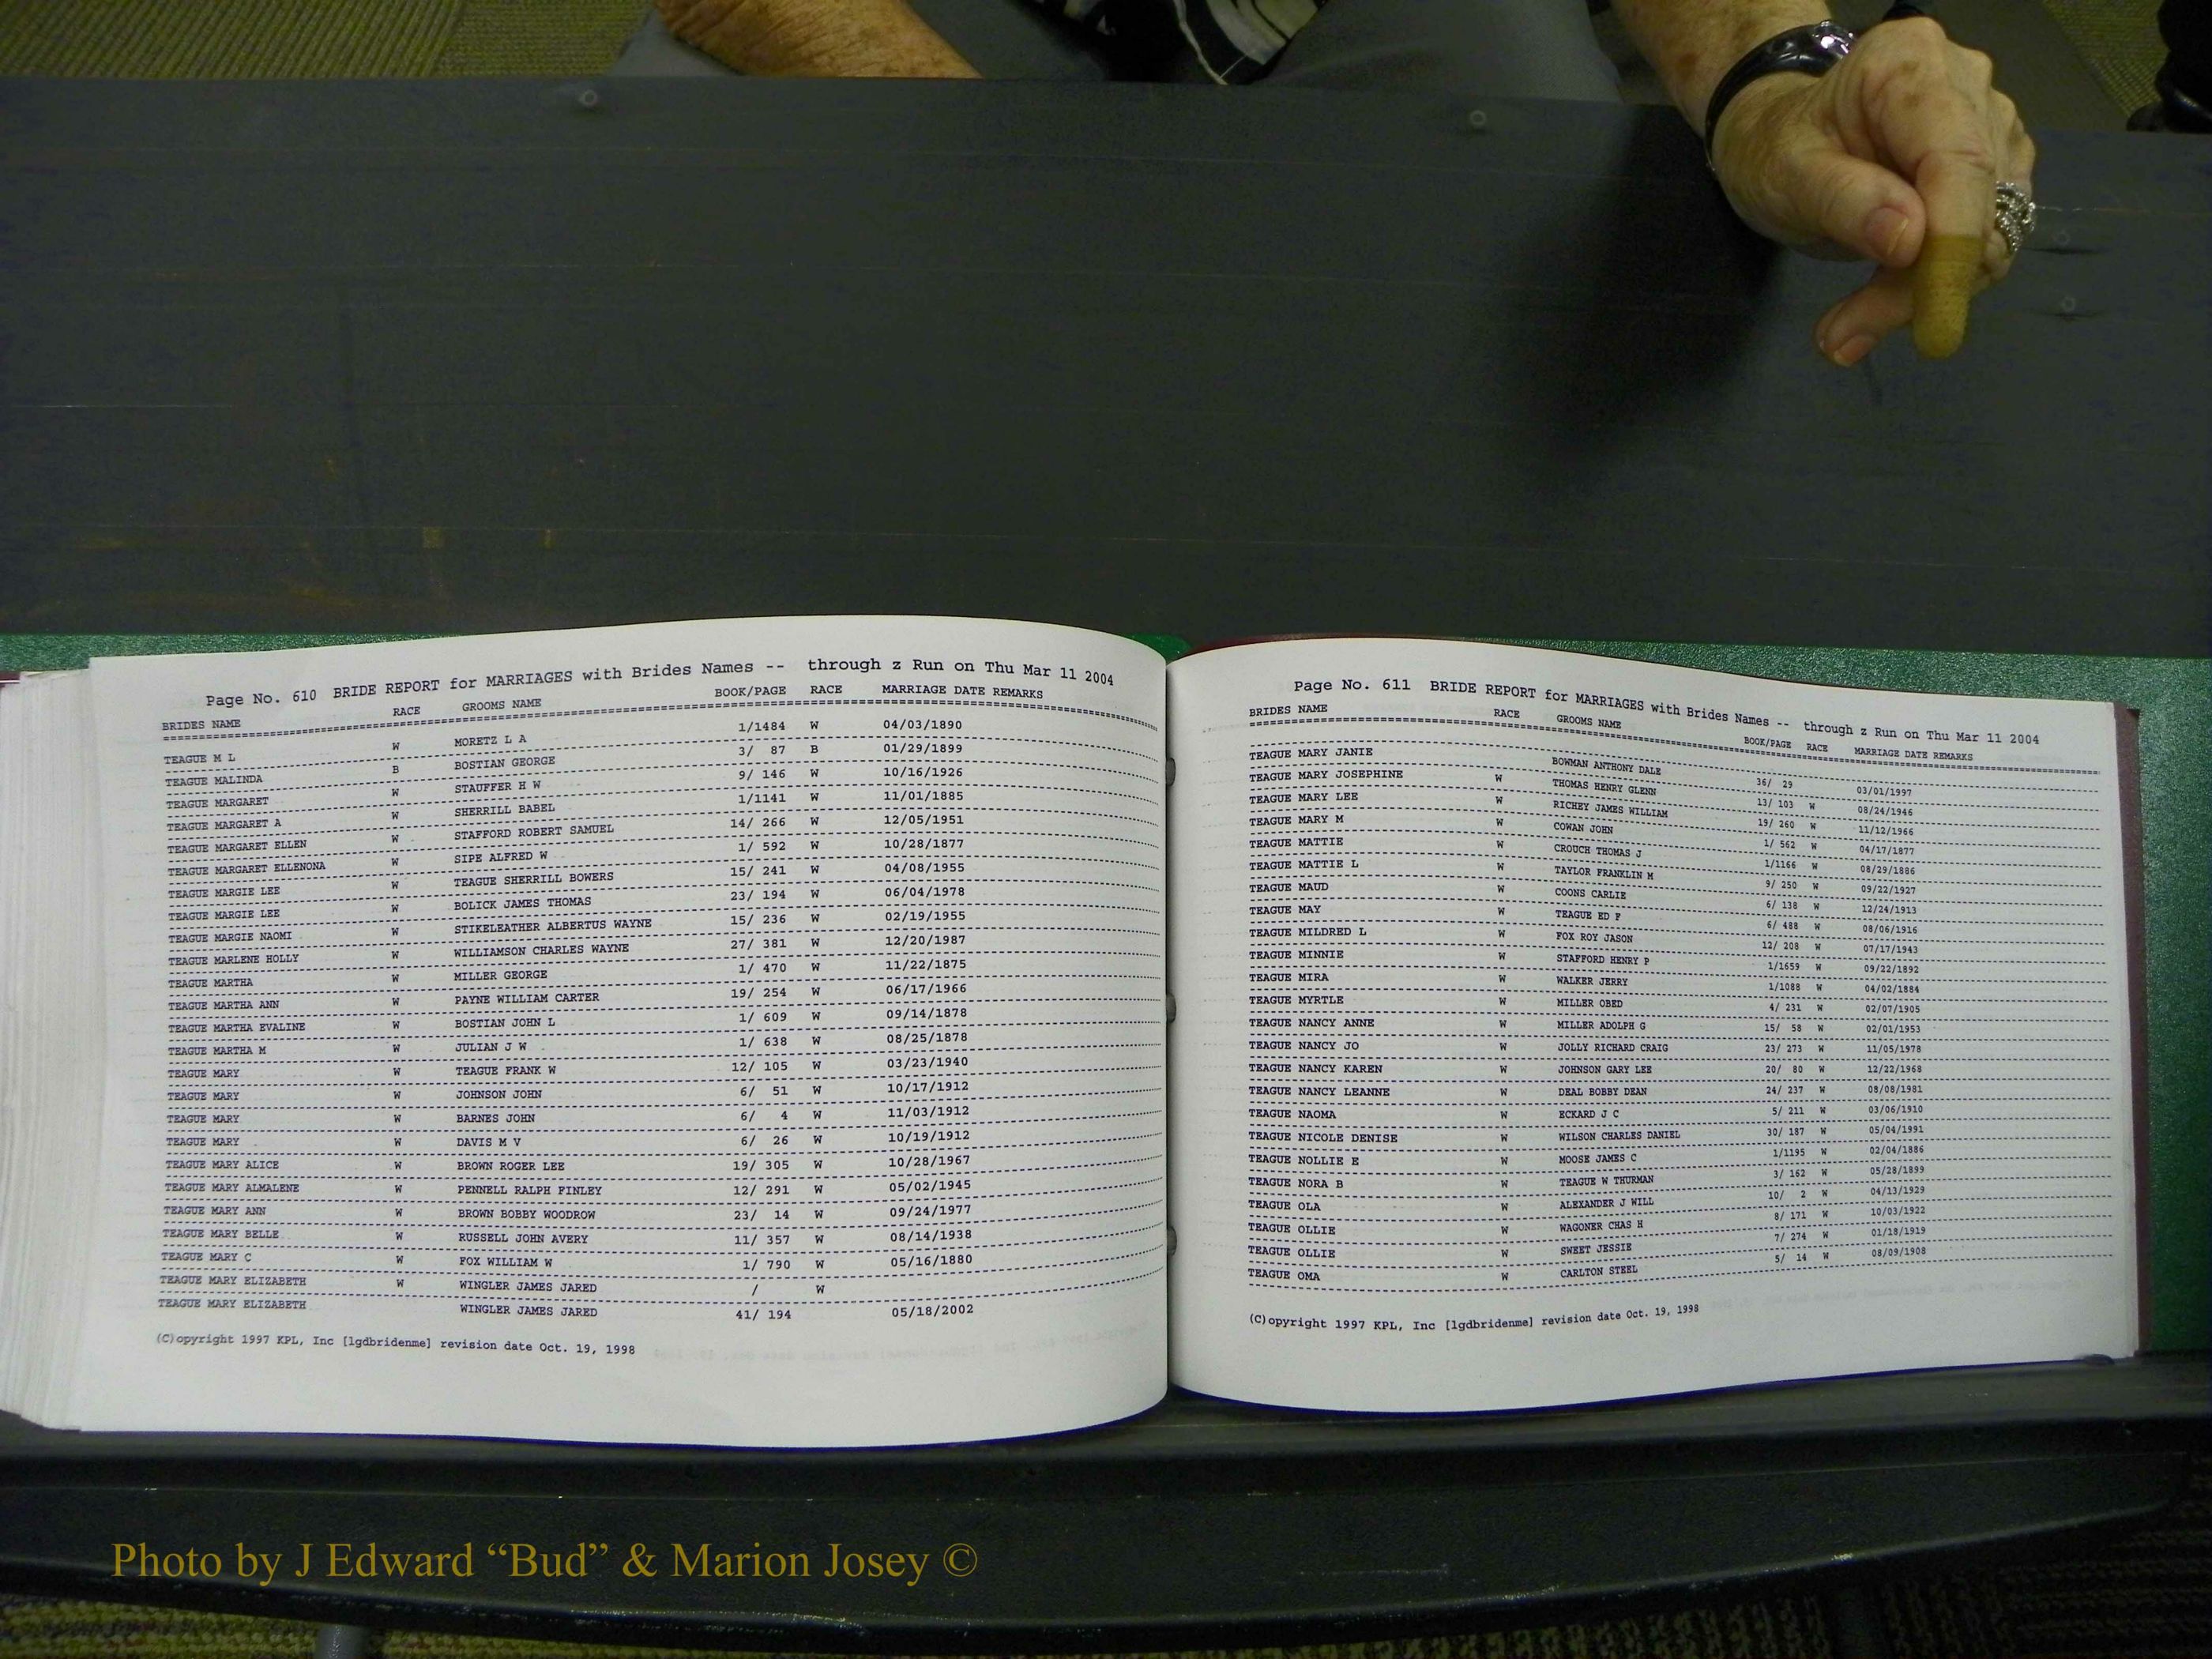 Page No. 610 BRIDE REPORT for MARRIAGES with Brides Names -- through z Run on Thu Mar 11 2004
BRIDES NAME RACE GROOMS NAME BOOK/PAGE RACE MARRIAGE DATE REMARKS
TEAGUE M L W MORETZ L A 1/1484 W 04/03/1890
TEAGUE MALINDA B BOSTIAN GEORGE 3/ 87 B 01/29/1899
TEAGUE MARGARET W STAUFFER H W 9/ 146 W 10/16/1926
TEAGUE MARGARET A W SHERRILL BABEL 1/1141 W 11/01/1885
TEAGUE MARGARET ELLEN W STAFFORD ROBERT SAMUEL 14/ 266 W 12/05/1951
TEAGUE MARGARET ELLENONA W SIPE ALFRED W 1/ 592 W 10/28/1877
TEAGUE MARGIE LEE W TEAGUE SHERRILL BOWERS 15/ 241 W 04/08/1955
TEAGUE MARGIE LEE W BOLICK JAMES THOMAS 23/ 194 W 06/04/1978
TEAGUE MARGIE NAOMI W STIKELEATHER ALBERTUS WAYNE 15/ 236 W 02/19/1955
TEAGUE MARLENE HOLLY W WILLIAMSON CHARLES WAYNE 27/ 381 W 12/20/1987
TEAGUE MARTHA W MILLER GEORGE 1/ 470 W 11/22/1875
TEAGUE MARTHA ANN W PAYNE WILLIAM CARTER 19/ 254 W 06/17/1966
TEAGUE MARTHA EVALINE W BOSTIAN JOHN L 1/ 609 W 09/14/1878
TEAGUE MARTHA M W JULIAN J W 1/ 638 W 08/25/1878
TEAGUE MARY W TEAGUE FRANK W 12/ 105 W 03/23/1940
TEAGUE MARY W JOHNSON JOHN 6/ 51 W 10/17/1912
TEAGUE MARY W BARNES JOHN 6/ 4 W 11/03/1912
TEAGUE MARY W DAVIS M V 6/ 26 W 10/19/1912
TEAGUE MARY ALICE W BROWN ROGER LEE 19/ 305 W 10/28/1967
TEAGUE MARY ALMALENE W PENNELL RALPH FINLEY 12/ 291 W 05/02/1945
TEAGUE MARY ANN W BROWN BOBBY WOODROW 23/ 14 W 09/24/1977
TEAGUE MARY BELLE W RUSSELL JOHN AVERY 11/ 357 W 08/14/1938
TEAGUE MARY C W FOX WILLIAM W 1/ 790 W 05/16/1880
TEAGUE MARY ELIZABETH W WINGLER JAMES JARED / W
TEAGUE MARY ELIZABETH WINGLER JAMES JARED 41/ 194 05/18/2002
(C)opyright 1997 KPL, Inc [lgdbridenme] revision date Oct. 19, 1998
Page No. 611 BRIDE REPORT for MARRIAGES with Brides Names -- through z Run on Thu Mar 11 2004
BRIDES NAME RACE GROOMS NAME BOOK/PAGE RACE MARRIAGE DATE REMARKS
TEAGUE MARY JANIE BOWMAN ANTHONY DALE 36/ 29 03/01/1997
TEAGUE MARY JOSEPHINE W THOMAS HENRY GLENN 13/ 103 W 08/24/1946
TEAGUE MARY LEE W RICHEY JAMES WILLIAM 19/ 260 W 11/12/1966
TEAGUE MARY M W COWAN JOHN 1/ 562 W 04/17/1877
TEAGUE MATTIE W CROUCH THOMAS J 1/1166 W 08/29/1886
TEAGUE MATTIE L W TAYLOR FRANKLIN M 9/ 250 W 09/22/1927
TEAGUE MAUD W COONS CARLIE 6/ 138 W 12/24/1913
TEAGUE MAY W TEAGUE ED F 6/ 488 W 08/06/1916
TEAGUE MILDRED L W FOX ROY JASON 12/ 208 W 07/17/1943
TEAGUE MINNIE W STAFFORD HENRY P 1/1659 W 09/22/1892
TEAGUE MIRA W WALKER JERRY 1/1088 W 04/02/1884
TEAGUE MYRTLE W MILLER OBED 4/ 231 W 02/07/1905
TEAGUE NANCY ANNE W MILLER ADOLPH G 15/ 58 W 02/01/1953
TEAGUE NANCY JO W JOLLY RICHARD CRAIG 23/ 273 W 11/05/1978
TEAGUE NANCY KAREN W JOHNSON GARY LEE 20/ 80 W 12/22/1968
TEAGUE NANCY LEANNE W DEAL BOBBY DEAN 24/ 237 W 08/08/1981
TEAGUE NAOMA W ECKARD J C 5/ 211 W 03/06/1910
TEAGUE NICOLE DENISE W WILSON CHARLES DANIEL 30/ 187 W 05/04/1991
TEAGUE NOLLIE E W MOOSE JAMES C 1/1195 W 02/04/1886
TEAGUE NORA B W TEAGUE W THURMAN 3/ 162 W 05/28/1899
TEAGUE OLA W ALEXANDER J WILL 10/ 2 W 04/13/1929
TEAGUE OLLIE W WAGONER CHAS H 8/ 171 W 10/03/1922
TEAGUE OLLIE W SWEET JESSIE 7/ 274 W 01/18/1919
TEAGUE OMA W CARLTON STEEL 5/ 14 W 08/09/1908
(C)opyright 1997 KPL, Inc [lgdbridenme] revision date Oct. 19, 1998
Photo by J Edward “Bud” & Marion Josey ©